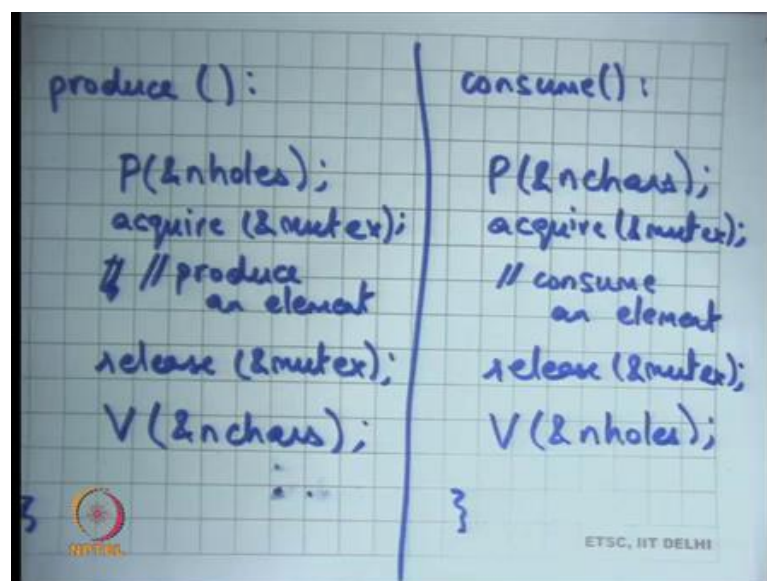 produce ():
P(&nholes);
acquire (&mutex);
// produce
an element
release (&mutex);
V(&nchars);
}
consume():
P(&nchars);
acquire (&mutex);
// consume
an element
release (&mutex);
V(&nholes);
}
NPTEL
ETSC, IIT DELHI